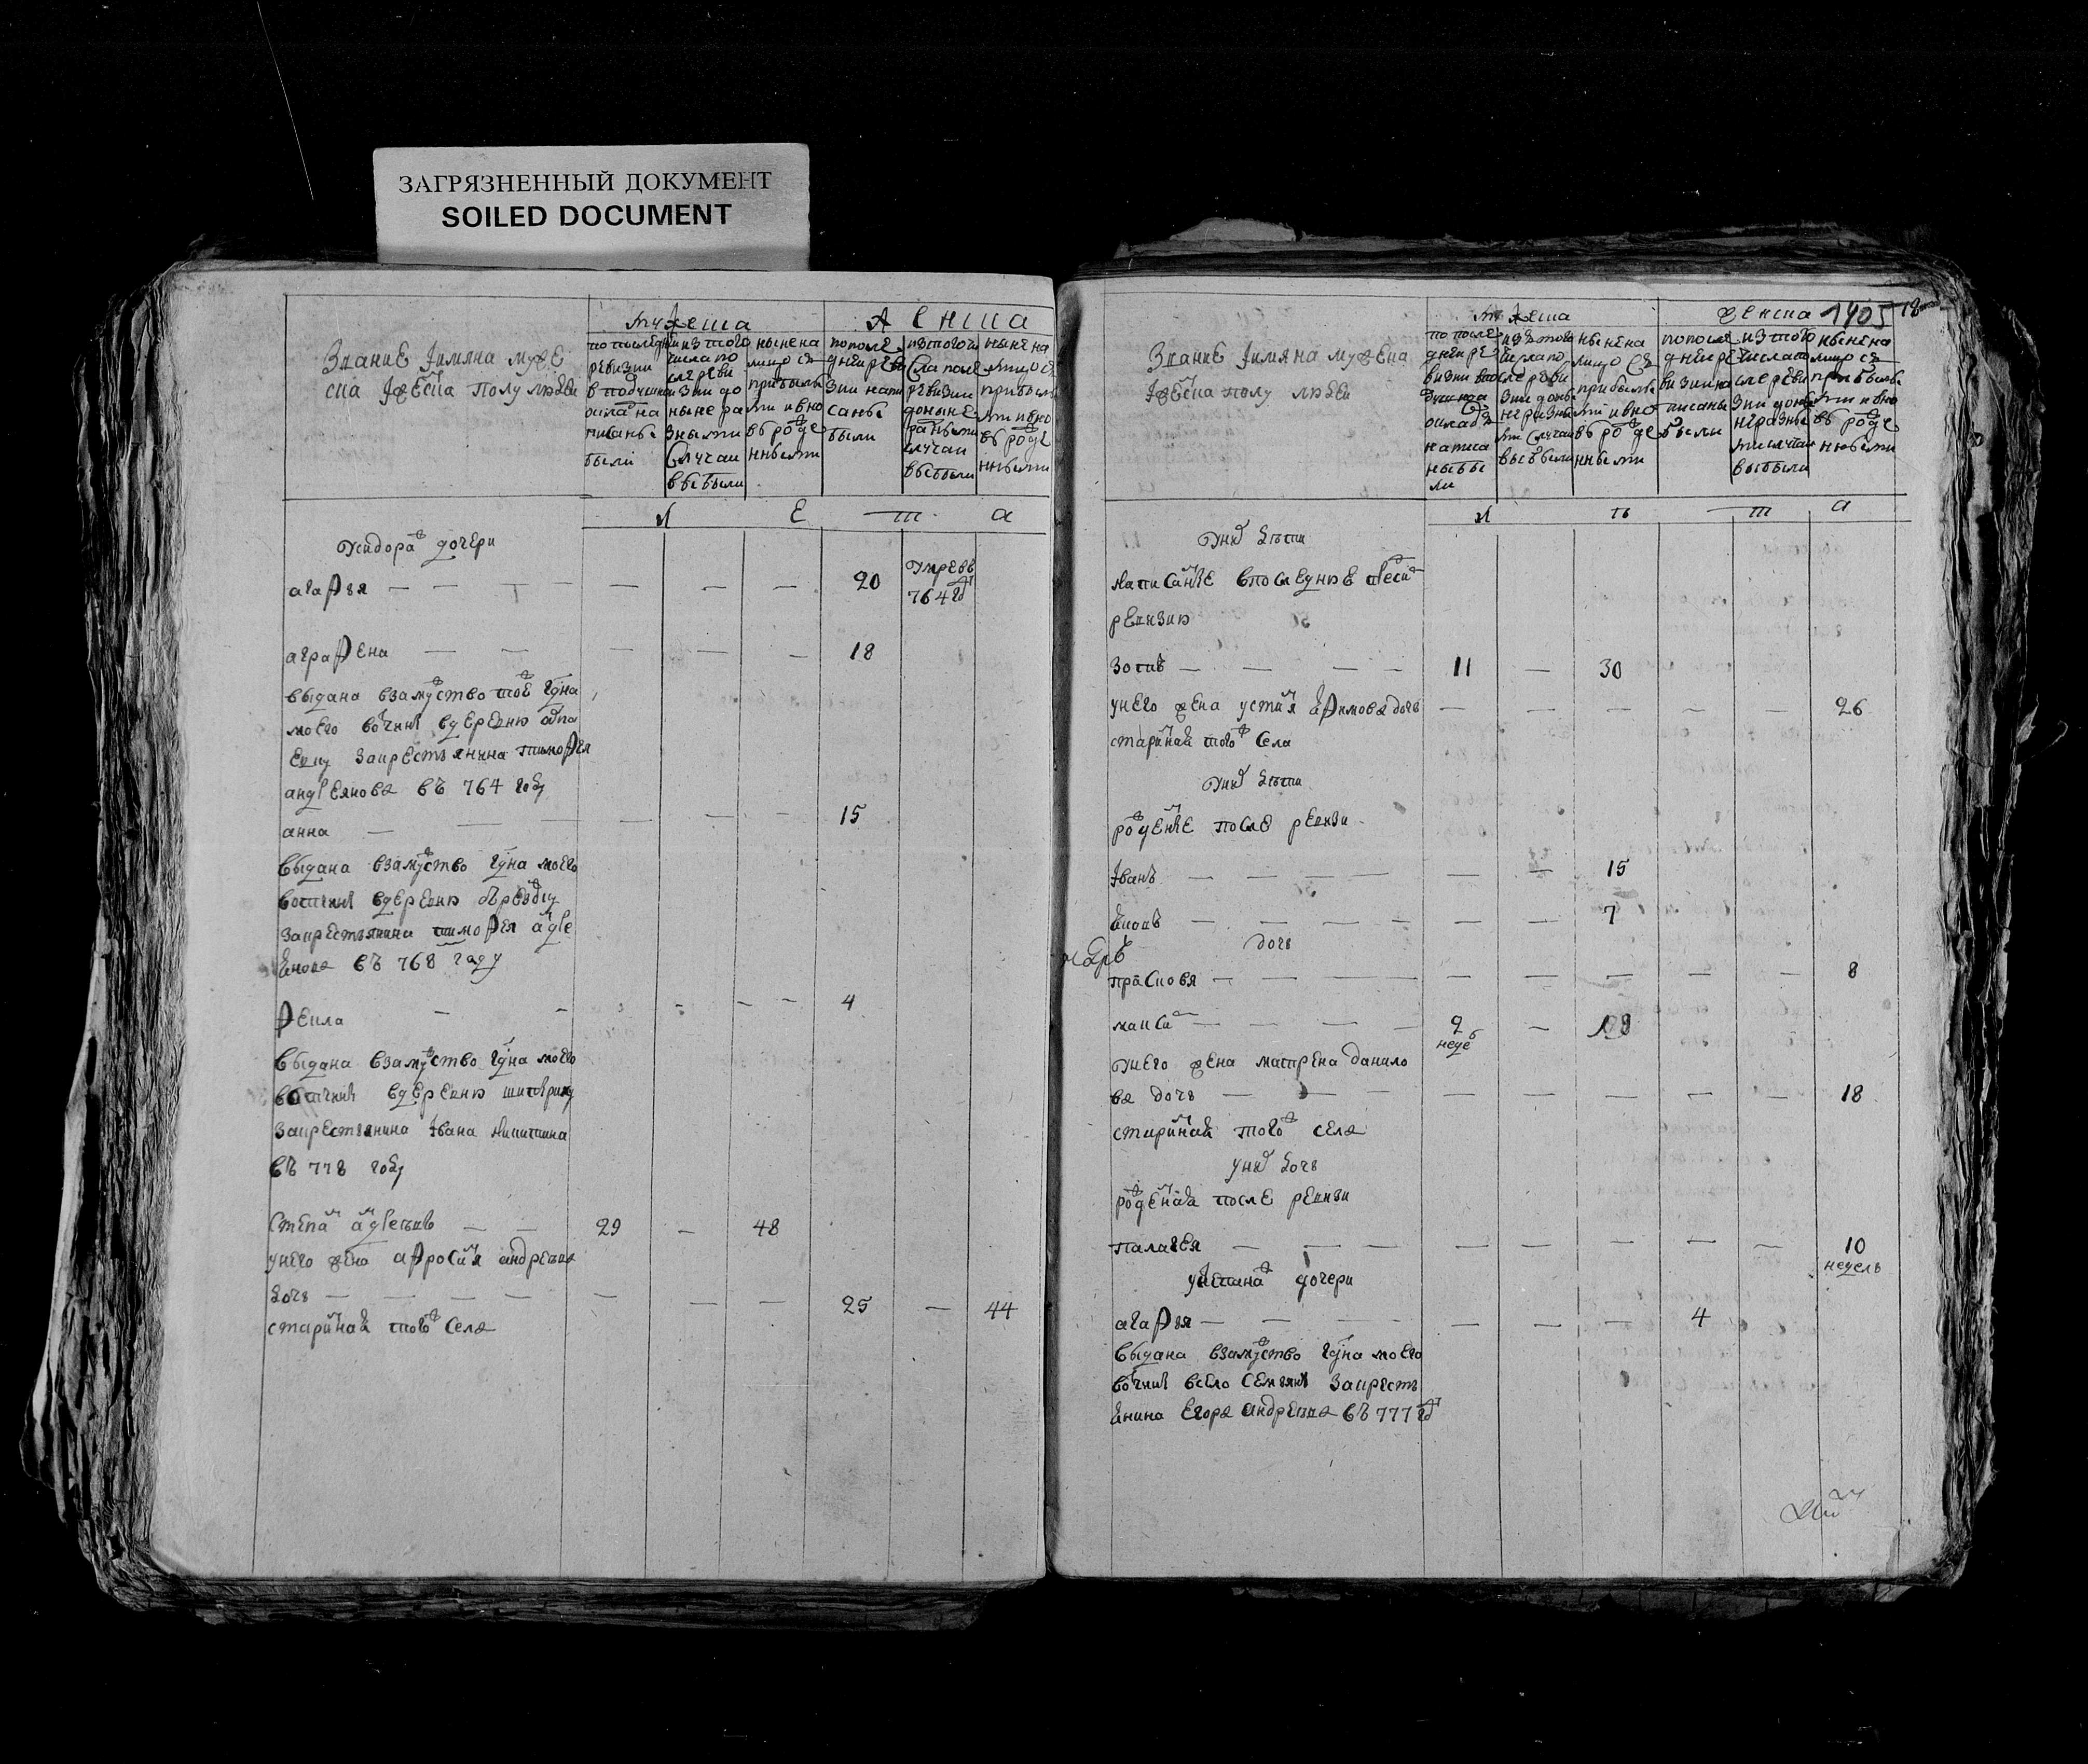 ЗАГРЯЗНЕННЫЙ ДОКУМЕНТ
SOILED DOCUMENT
мужеска
женска
Звание Iимяна муже
ска Iженска полу людеи
по последнеи
ревизии
в подушном
окладѣ на
писаны
были
из того
числа по
сле реви
зии до
ныне ра
зными
случаи
выбыли
ныне на
лицо съ
прибылы
ми и вно
въ рожде
нными
по после
днеи реви
зии напи
саны
были
ис того чи
сла после
ревизии
доныне
разными
случаи
выбыли
ныне на
лицо съ
прибылы
ми и вно
въ рожде
нными
Л Е т а
Усидора дочери
агафья 20 умре въ 764 гд
аграфена 18
выдана взамуство тое ж гдна
моего вотчины вдеревню
за крестьянина тимофея
андреянова въ 764 году
анна 15
выдана взамуство гдна моего
вотчины вдеревню
закрестьянина тимофея адре
янова въ 768 году
фекла 4
выдана взамуство гдна моего
вотчины вдеревню
закрестьянина Iвана никитина
въ 778 году
Степан адреевъ 29 - 48
унего жена афросиня андреева
дочь 25 - 44
старинная того ж села
мужеска
женска 1405
Звание Iимяна мужеска
Iженска полу людеи
по после
днеи ре
визии впо
душном
окладѣ
написа
ны бы
ли
из того
числа по
сле реви
зии доны
не разны
ми случаи
выбыли
ныне на
лицо съ
прибылы
ми и вно
въ рожде
нными
по после
днеи ре
визии на
писаны
были
из того
числа по
сле реви
зии доны
не разны
ми случаи
выбыли
ныне на
лицо съ
прибылы
ми и вно
въ рожде
нными
л ѣ т а
Уних дѣти
написанные впоследнюю
ревизию
зотъ 11 - 30
унего жена устиня ефимова дочь 26
старинная того ж села
Уних дѣти
рожденные после ревизи
Iванъ 15
7
дочь
прасковя 8
максим 2 неде - 19
Унего жена матрена данило
ва дочь 18
старинная того ж села
Уних дочь
рожденная после ревизи
палагея 10 недель
дочери
агафья 4
выдана взамуство гдна моего
вотчины всело закресть
янина Егора андреева въ 777 гд